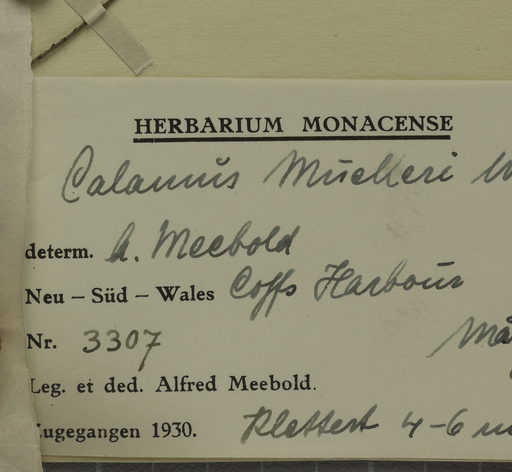 HERBARIUM MONACENSE
Calamus Muelleri W
determ. A. Meebold
Neu – Süd – Wales Coffs Harbour
Nr. 3307
Mä
Leg. et ded. Alfred Meebold.
Zugegangen 1930. Klettert 4-6 m